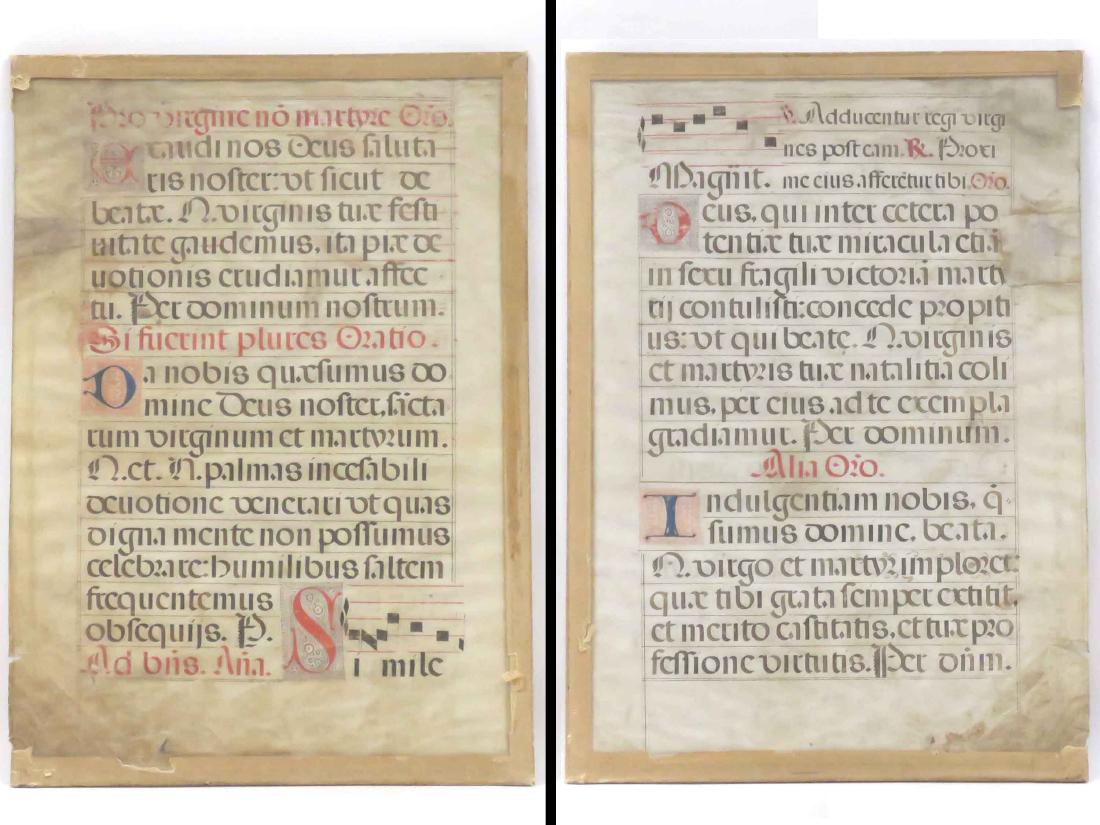 Pro virgine nō martyre Orō.
Exaudi nos Deus saluta
ris noster: vt sicut de
beatæ. N. virginis tuæ festi
uitate gaudemus, ita piæ de
uotionis erudiamur affec
tu. Per dominum nostrum.
Si fuerint plures Oratio.
Da nobis quæsumus do
mine Deus noster, sācta
rum virginum et martyrum.
N. et. N. palmas incessabili
deuotione venerari vt quas
digna mente non possumus
celebrare: humilibus saltem
frequentemus
obsequijs. P.
Ad bn̄s. An̄a. Si mile
℣. Adducentur regi virgi
nes post eam. ℟. Proxi
Magn̄it. me eius afferētur tibi. Orō.
Deus, qui inter cetera po
tentiæ tuæ miracula etiā
in sexu fragili victoriā marty
rij contulisti: concede propiti
us: vt qui beate. N. virginis
et martyris tuæ natalitia coli
mus, per eius ad te exempla
gradiamur. Per dominum.
Alia Orō.
Indulgentiam nobis, q̄
sumus domine, beata.
N. virgo et martyr imploret:
quæ tibi grata semper extitit,
et merito castitatis, et tuæ pro
fessione virtutis. Per dn̄m.